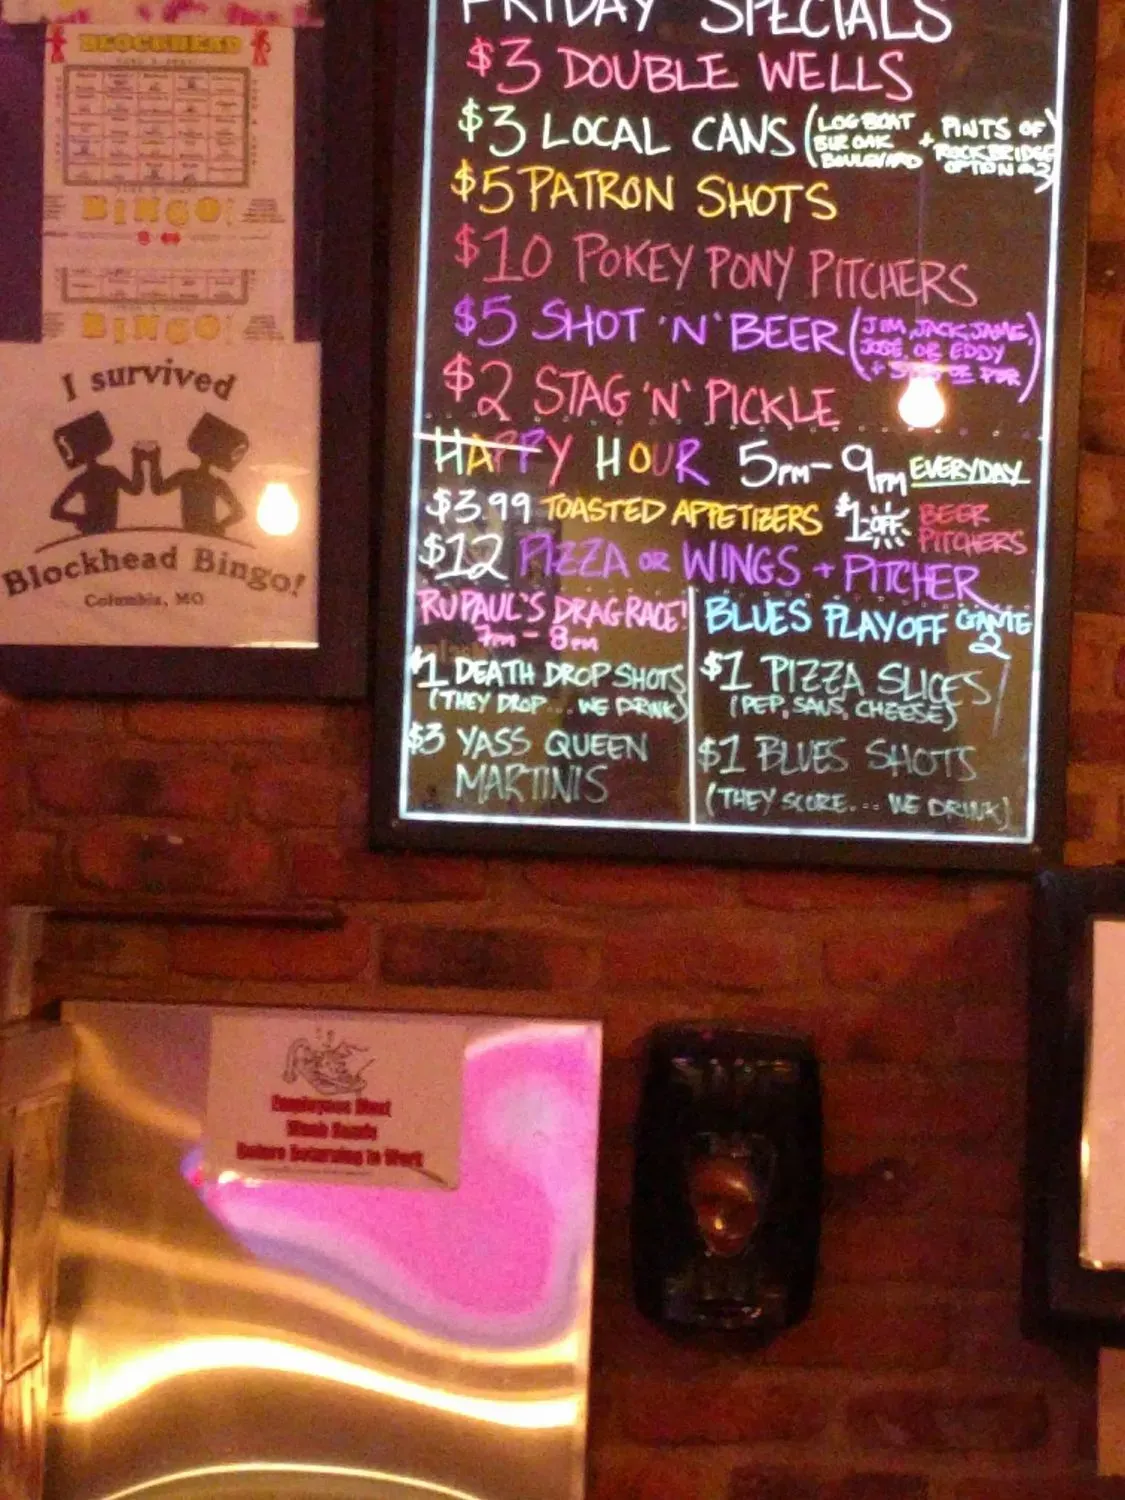 BLOCKHEAD
BINGO
BINGO
I survived
Blockhead Bingo!
Columbia, MO
FRIDAY SPECIALS
$3 DOUBLE WELLS
$3 LOCAL CANS (LOGBOAT + PINTS OF
BUR OAK ROCKBRIDGE
BOULEVARD OPTION 1 & 2)
$5 PATRON SHOTS
$10 POKEY PONY PITCHERS
$5 SHOT 'N' BEER (JIM, JACK, JAME,
JOSE, OR EDDY
$2 STAG 'N' PICKLE
HAPPY HOUR 5PM-9PM EVERYDAY
$3.99 TOASTED APPETIZERS $1-OFF BEER
PITCHERS
$12 PIZZA OR WINGS + PITCHER
RUPAUL'S DRAG RACE!
7PM - 8PM
$1 DEATH DROP SHOTS
(THEY DROP... WE DRINK)
$3 YASS QUEEN
MARTINIS
BLUES PLAYOFF GAME
2
$1 PIZZA SLICES
(PEP, SAUS, CHEESE)
$1 BLUES SHOTS
(THEY SCORE... WE DRINK)
Employees Must
Wash Hands
Before Returning to Work